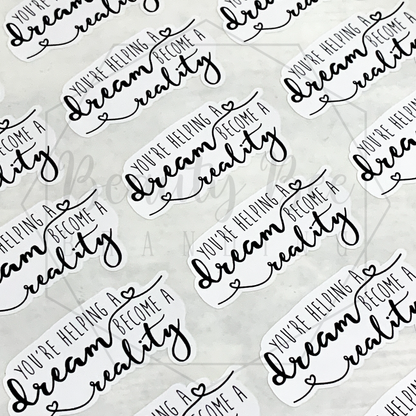 YOU'RE HELPING A
dream BECOME A
reality
YOU'RE HELPING A
dream BECOME A
reality
YOU'RE HELPING A
dream BECOME A
reality
YOU'RE HELPING A
dream BECOME A
reality
YOU'RE HELPING A
dream BECOME A
reality
YOU'RE HELPING A
dream BECOME A
reality
YOU'RE HELPING A
dream BECOME A
reality
Beauty Bee